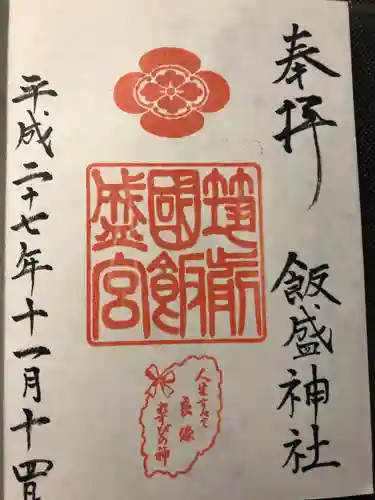 奉拝
飯盛神社
筑前
國飯
盛宮
人生すべて
良縁
むすびの神
平成二十七年十一月十四日